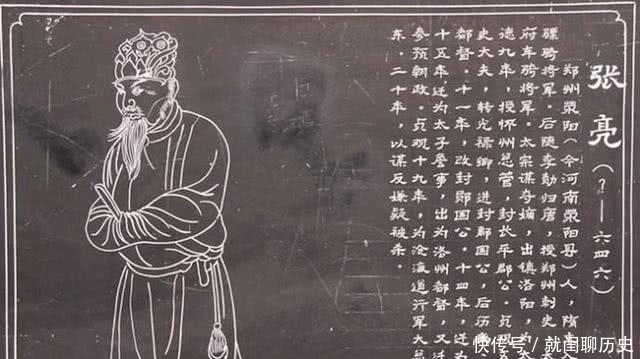 张亮(?——六四六)
郑州荥阳(今河南荥阳县)人,隋末
骠骑将军。后随李勣归唐,授郑州刺史
府车骑将军。太宗谋夺嫡,出镇洛阳,为大
德九年,授怀州总管,封长平郡公。贞观
史大夫,转光禄卿,进封鄅国公,后历
都督。十一年,改封郧国公。十四年,迁为
十五年迁为太子詹事,出为洛州都督,又迁
参预朝政。贞观十九年,为沧海道行军大总
东。二十年,以谋反嫌疑被杀。
快传号 / 就国聊历史